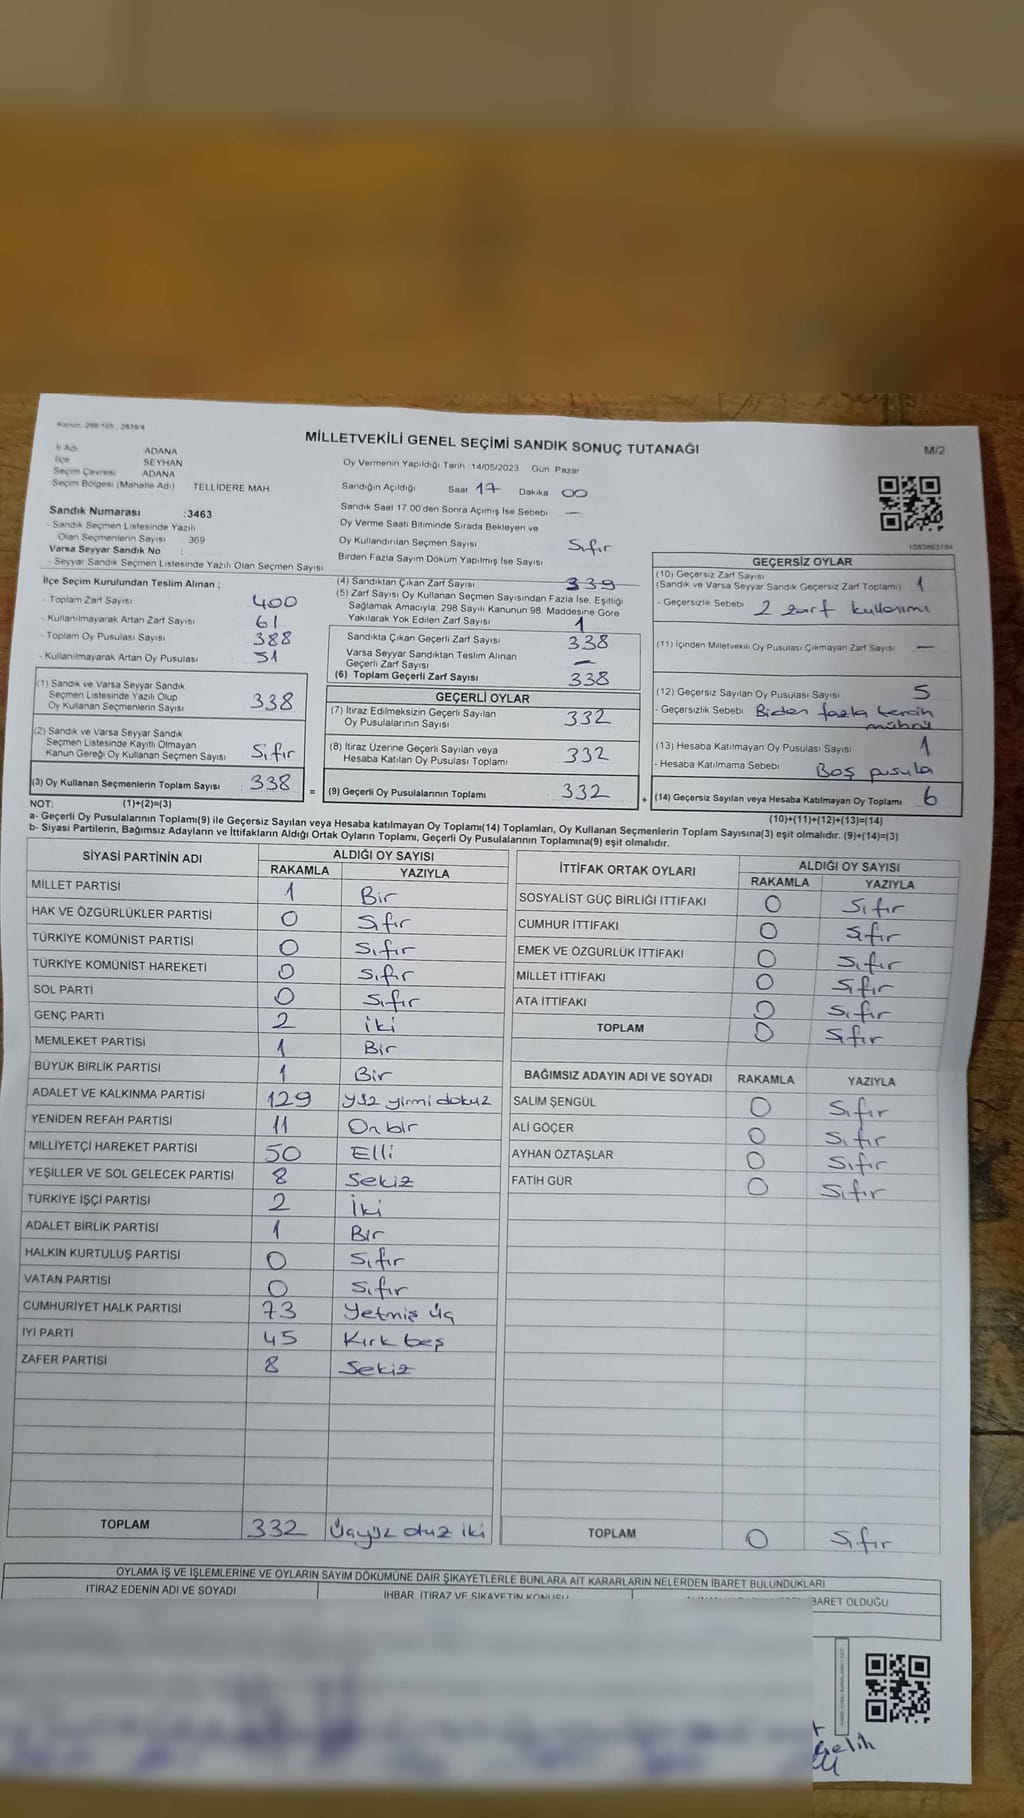 Kanun: 298/105 , 2839/4
MİLLETVEKİLİ GENEL SEÇİMİ SANDIK SONUÇ TUTANAĞI
M/2
İl Adı ADANA
İlçe SEYHAN
Seçim Çevresi ADANA
Seçim Bölgesi (Mahalle Adı) TELLİDERE MAH.
Sandık Numarası :3463
- Sandık Seçmen Listesinde Yazılı
Olan Seçmenlerin Sayısı 369
Varsa Seyyar Sandık No :
- Seyyar Sandık Seçmen Listesinde Yazılı Olan Seçmen Sayısı:
Oy Vermenin Yapıldığı Tarih 14/05/2023 Gün Pazar
Sandığın Açıldığı Saat 17 Dakika 00
Sandık Saat 17.00'den Sonra Açımış İse Sebebi —
Oy Verme Saati Bitiminde Sırada Bekleyen ve
Oy Kullandırılan Seçmen Sayısı Sıfır
Birden Fazla Sayım Döküm Yapılmış İse Sayısı
İlçe Seçim Kurulundan Teslim Alınan ;
- Toplam Zarf Sayısı 400
- Kullanılmayarak Artan Zarf Sayısı 61
- Toplam Oy Pusulası Sayısı 388
- Kullanılmayarak Artan Oy Pusulası 51
(1) Sandık ve Varsa Seyyar Sandık
Seçmen Listesinde Yazılı Olup
Oy Kullanan Seçmenlerin Sayısı 338
(2) Sandık ve Varsa Seyyar Sandık
Seçmen Listesinde Kayıtlı Olmayan
Kanun Gereği Oy Kullanan Seçmen Sayısı Sıfır
(3) Oy Kullanan Seçmenlerin Toplam Sayısı 338
(4) Sandıktan Çıkan Zarf Sayısı 339
(5) Zarf Sayısı Oy Kullanan Seçmen Sayısından Fazla İse, Eşitliği
Sağlamak Amacıyla, 298 Sayılı Kanunun 98. Maddesine Göre
Yakılarak Yok Edilen Zarf Sayısı 1
Sandıkta Çıkan Geçerli Zarf Sayısı 338
Varsa Seyyar Sandıktan Teslim Alınan
Geçerli Zarf Sayısı —
(6) Toplam Geçerli Zarf Sayısı 338
GEÇERLİ OYLAR
(7) İtiraz Edilmeksizin Geçerli Sayılan
Oy Pusulalarının Sayısı 332
(8) İtiraz Üzerine Geçerli Sayılan veya
Hesaba Katılan Oy Pusulası Toplamı 332
= (9) Geçerli Oy Pusulalarının Toplamı 332
GEÇERSİZ OYLAR
(10) Geçersiz Zarf Sayısı
(Sandık ve Varsa Seyyar Sandık Geçersiz Zarf Toplamı) 1
- Geçersizlik Sebebi 2 zarf kullanımı
(11) İçinden Milletvekili Oy Pusulası Çıkmayan Zarf Sayısı —
(12) Geçersiz Sayılan Oy Pusulası Sayısı 5
- Geçersizlik Sebebi Birden fazla tercih
mührü
(13) Hesaba Katılmayan Oy Pusulası Sayısı 1
- Hesaba Katılmama Sebebi Boş pusula
+ (14) Geçersiz Sayılan veya Hesaba Katılmayan Oy Toplamı 6
NOT: (1)+(2)=(3)
(10)+(11)+(12)+(13)=(14)
a- Geçerli Oy Pusulalarının Toplamı(9) ile Geçersiz Sayılan veya Hesaba katılmayan Oy Toplamı(14) Toplamları, Oy Kullanan Seçmenlerin Toplam Sayısına(3) eşit olmalıdır. (9)+(14)=(3)
b- Siyasi Partilerin, Bağımsız Adayların ve İttifakların Aldığı Ortak Oyların Toplamı, Geçerli Oy Pusulalarının Toplamına(9) eşit olmalıdır.
SİYASİ PARTİNİN ADI ALDIĞI OY SAYISI
RAKAMLA YAZIYLA
MİLLET PARTİSİ 1 Bir
HAK VE ÖZGÜRLÜKLER PARTİSİ 0 Sıfır
TÜRKİYE KOMÜNİST PARTİSİ 0 Sıfır
TÜRKİYE KOMÜNİST HAREKETİ 0 Sıfır
SOL PARTİ 0 Sıfır
GENÇ PARTİ 2 iki
MEMLEKET PARTİSİ 1 Bir
BÜYÜK BİRLİK PARTİSİ 1 Bir
ADALET VE KALKINMA PARTİSİ 129 yüz yirmi dokuz
YENİDEN REFAH PARTİSİ 11 On bir
MİLLİYETÇİ HAREKET PARTİSİ 50 Elli
YEŞİLLER VE SOL GELECEK PARTİSİ 8 Sekiz
TÜRKİYE İŞÇİ PARTİSİ 2 İki
ADALET BİRLİK PARTİSİ 1 Bir
HALKIN KURTULUŞ PARTİSİ 0 Sıfır
VATAN PARTİSİ 0 Sıfır
CUMHURİYET HALK PARTİSİ 73 Yetmiş üç
İYİ PARTİ 45 Kırk beş
ZAFER PARTİSİ 8 Sekiz
TOPLAM 332 Üçyüz otuz iki
İTTİFAK ORTAK OYLARI ALDIĞI OY SAYISI
RAKAMLA YAZIYLA
SOSYALİST GÜÇ BİRLİĞİ İTTİFAKI 0 Sıfır
CUMHUR İTTİFAKI 0 Sıfır
EMEK VE ÖZGÜRLÜK İTTİFAKI 0 Sıfır
MİLLET İTTİFAKI 0 Sıfır
ATA İTTİFAKI 0 Sıfır
TOPLAM 0 Sıfır
BAĞIMSIZ ADAYIN ADI VE SOYADI RAKAMLA YAZIYLA
SALİM ŞENGÜL 0 Sıfır
ALİ GÖÇER 0 Sıfır
AYHAN ÖZTAŞLAR 0 Sıfır
FATİH GÜR 0 Sıfır
TOPLAM 0 Sıfır
OYLAMA İŞ VE İŞLEMLERİNE VE OYLARIN SAYIM DÖKÜMÜNE DAİR ŞİKAYETLERLE BUNLARA AİT KARARLARIN NELERDEN İBARET BULUNDUKLARI
İTİRAZ EDENİN ADI VE SOYADI İHBAR, İTİRAZ VE ŞİKAYETİN KONUSU BARET OLDUĞU